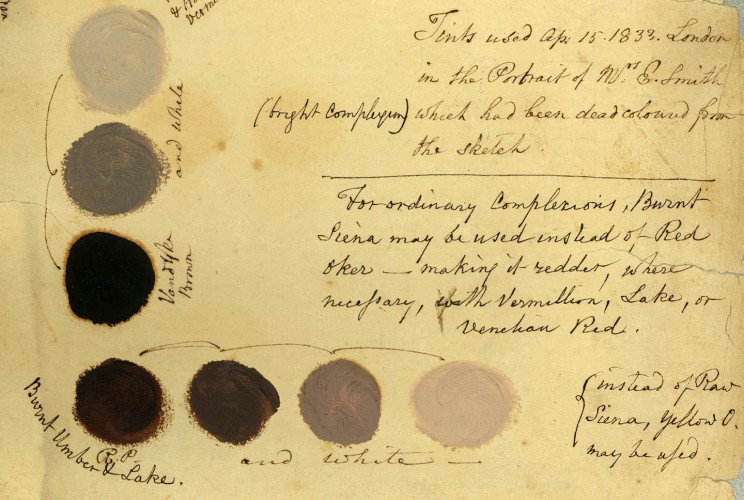 & 
Vermi
Tints used Ap. 15. 1833. London
in the Portrait of Mrs E. Smith
(bright Complexion) which had been dead coloured from
the sketch.
and white
Vandyke
Brown
For ordinary Complexions, Burnt
Siena may be used instead of Red
Oker — making it redder, where
necessary, with Vermillion, Lake, or
Venetian Red.
Burnt Umber & Lake.
R. P.
and white —
instead of Raw
Siena, Yellow O.
may be used.